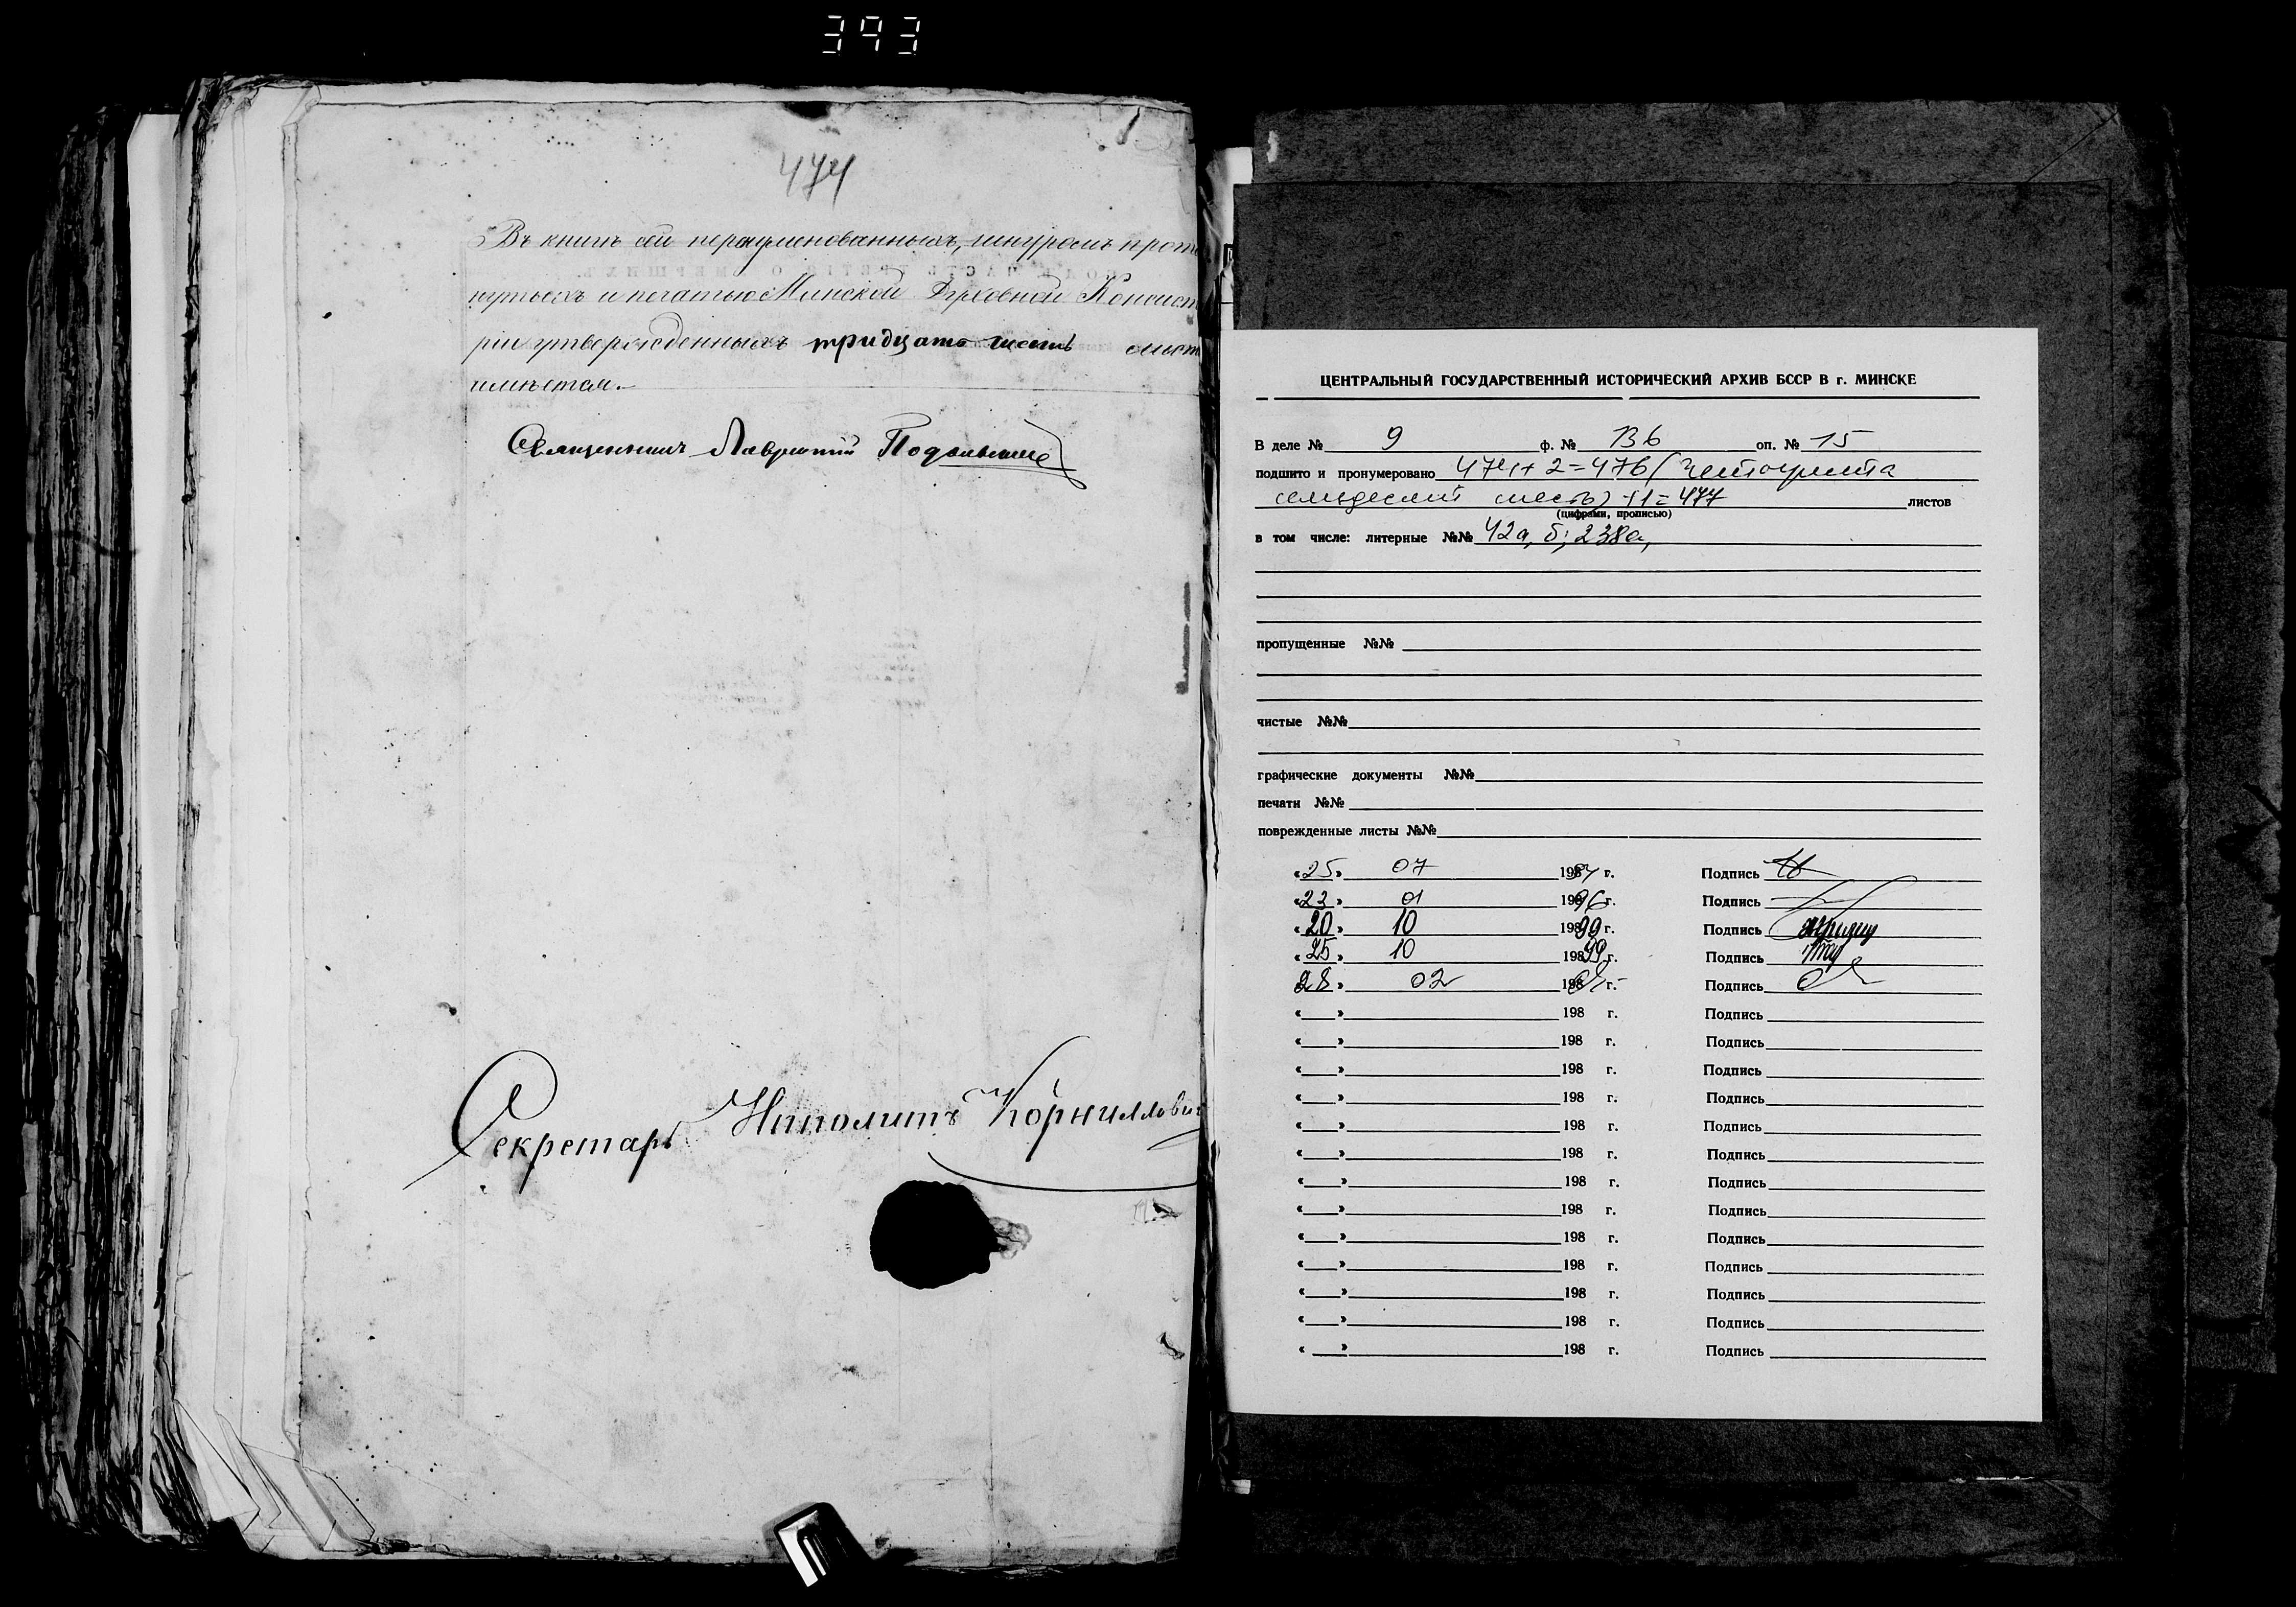 393
474
Въ книгѣ сей перенумерованныхъ, шнуромъ прот
нутыхъ и печатью Минской Духовной Консист
ріи утвержденныхъ тридцать шесть лист
имѣется.
Священникъ Лаврентій
Секретарь Ипполитъ Корниллови
ЦЕНТРАЛЬНЫЙ ГОСУДАРСТВЕННЫЙ ИСТОРИЧЕСКИЙ АРХИВ БССР В г. МИНСКЕ
В деле № 9 ф. № 136 оп. № 15
подшито и пронумеровано 474+2=476 (четыреста
семьдесят шесть) +1=477 листов
(цифрами, прописью)
в том числе: литерные №№ 42а, б; 238а,
пропущенные №№
чистые №№
графические документы №№
печати №№
поврежденные листы №№
«25» 07 1984 г. Подпись
«23» 01 1996 г. Подпись
«20» 10 1999 г. Подпись
«25» 10 1999 г. Подпись
«28» 02 198 г. Подпись
« » 198 г. Подпись
« » 198 г. Подпись
« » 198 г. Подпись
« » 198 г. Подпись
« » 198 г. Подпись
« » 198 г. Подпись
« » 198 г. Подпись
« » 198 г. Подпись
« » 198 г. Подпись
« » 198 г. Подпись
« » 198 г. Подпись
« » 198 г. Подпись
« » 198 г. Подпись